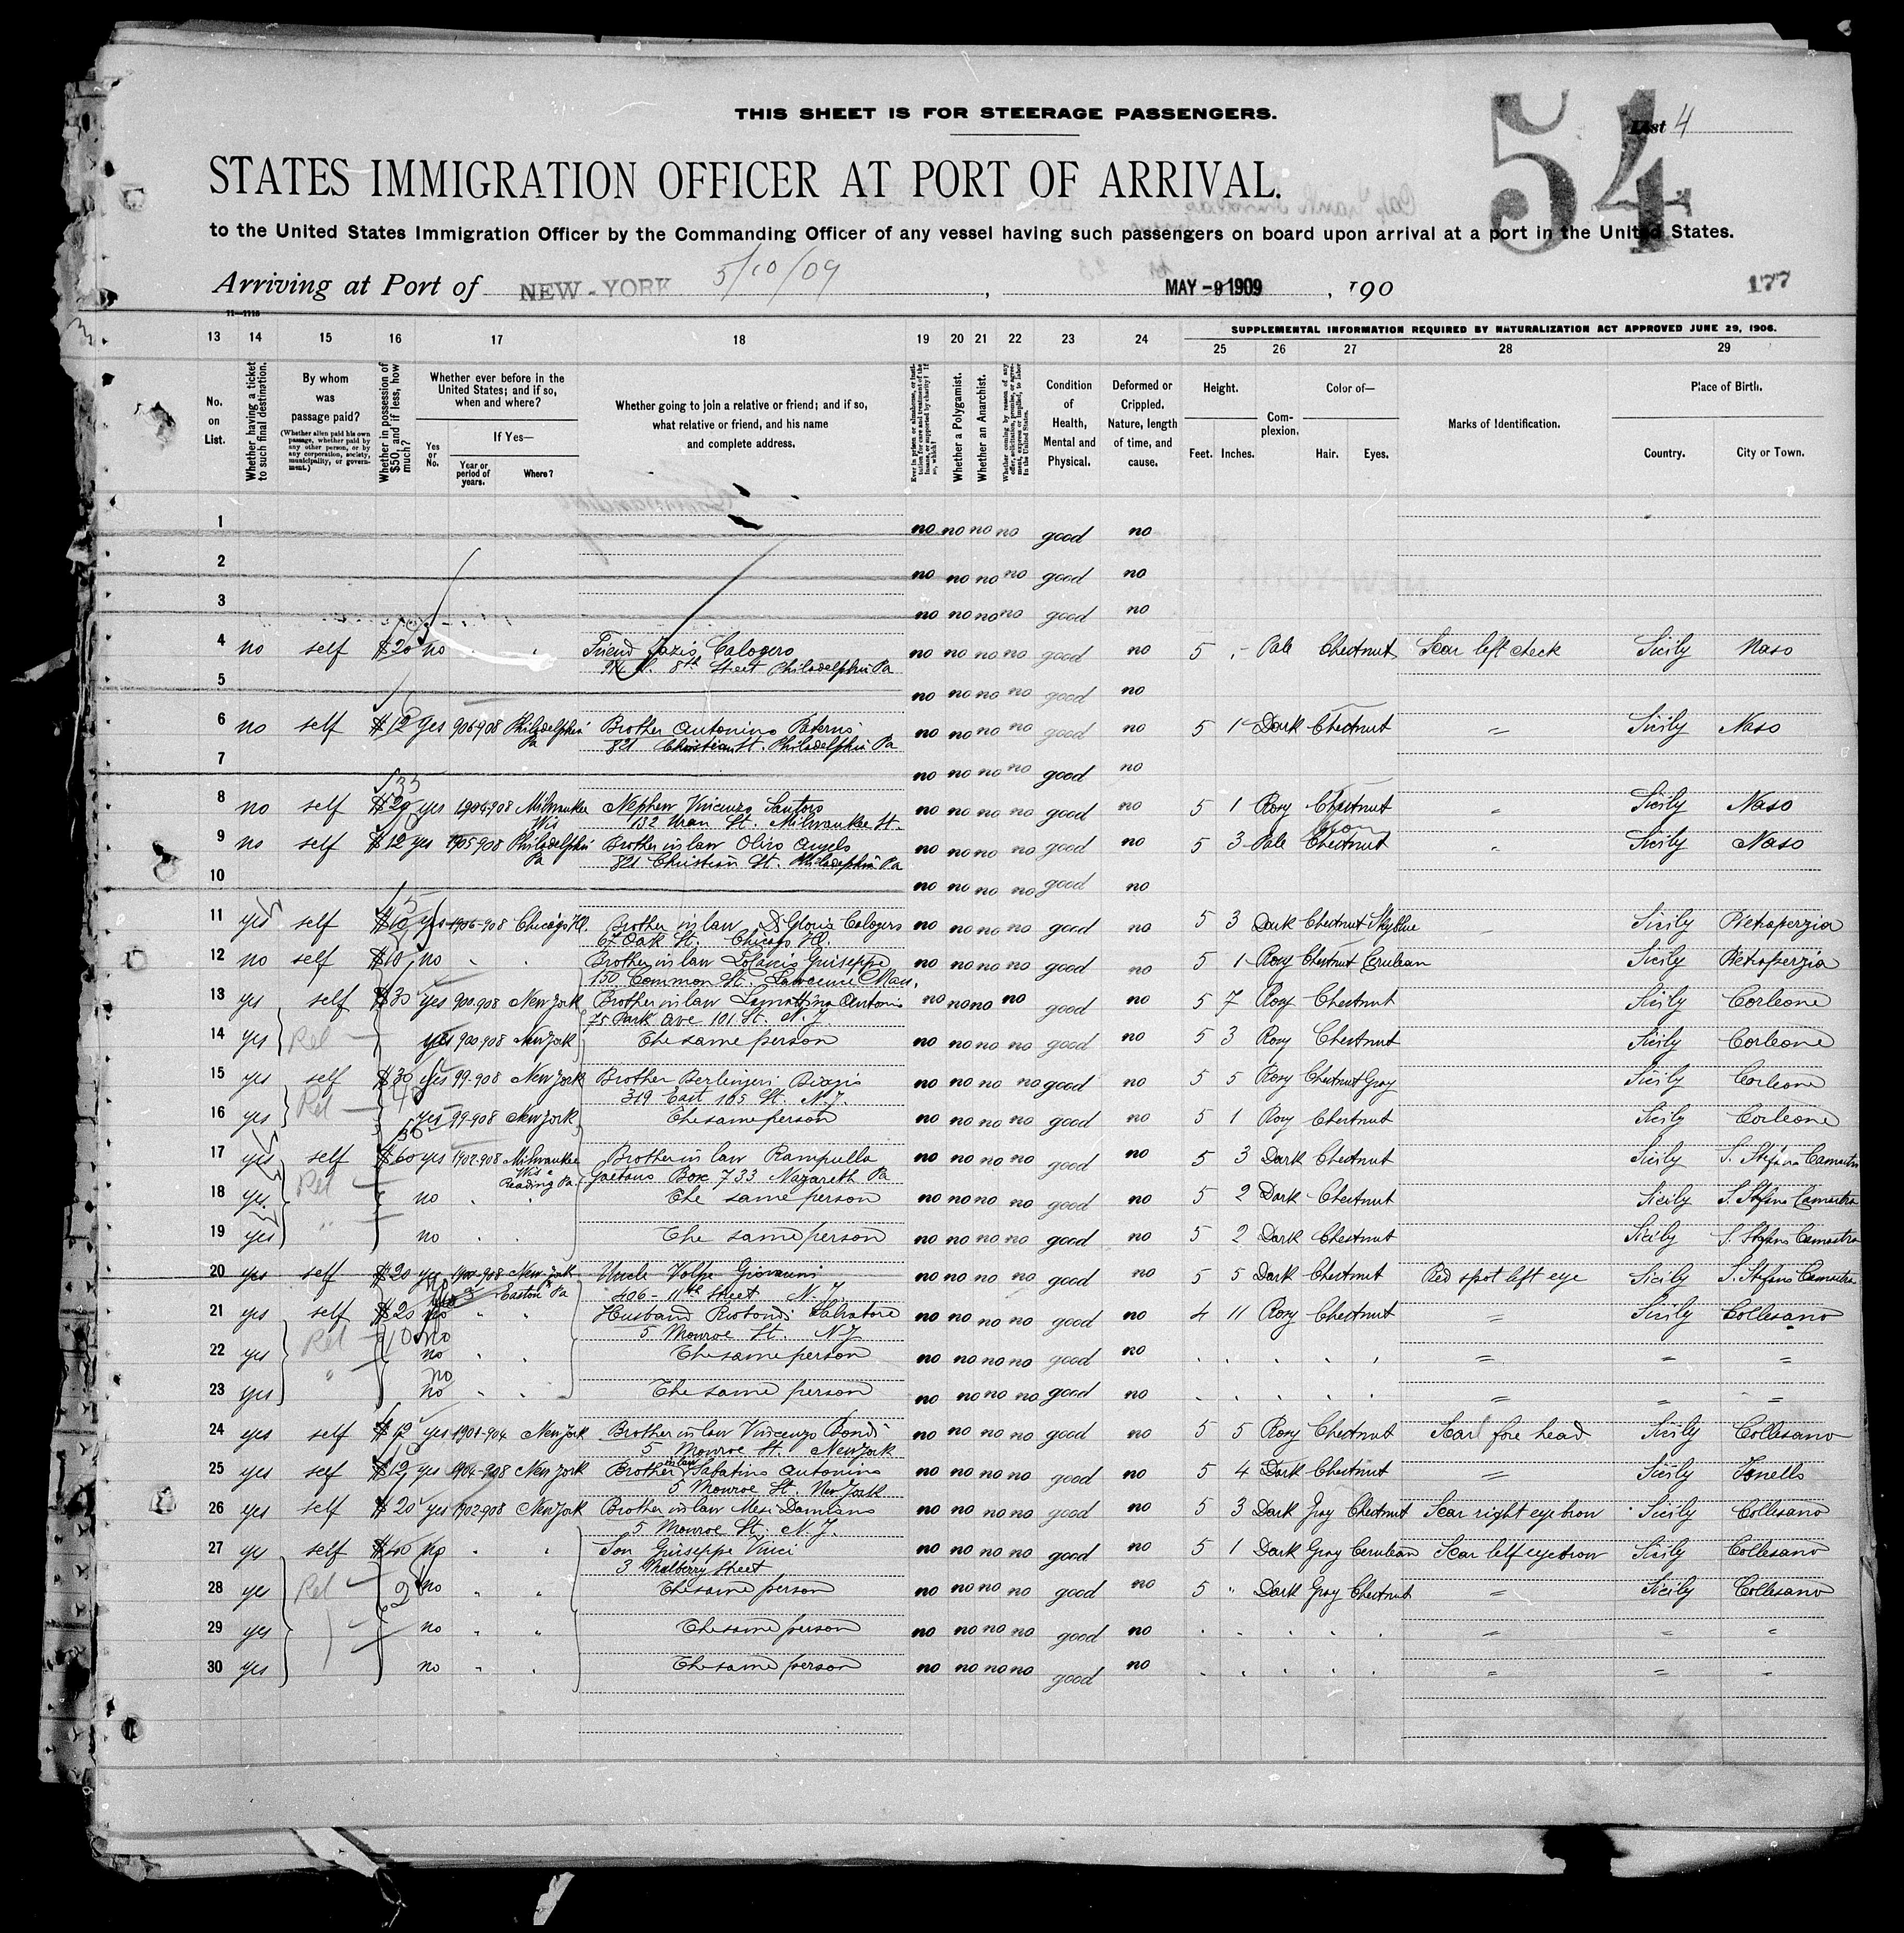 THIS SHEET IS FOR STEERAGE PASSENGERS.
List 4
54
STATES IMMIGRATION OFFICER AT PORT OF ARRIVAL.
to the United States Immigration Officer by the Commanding Officer of any vessel having such passengers on board upon arrival at a port in the United States.
Arriving at Port of NEW-YORK 5/10/09, MAY -9 1909, 190
177
11—1116
SUPPLEMENTAL INFORMATION REQUIRED BY NATURALIZATION ACT APPROVED JUNE 29, 1906.
13 14 15 16 17 18 19 20 21 22 23 24 25 26 27 28 29
No. on List.
Whether having a ticket to such final destination.
By whom was passage paid?
(Whether alien paid his own passage, whether paid by any other person, or by any corporation, society, municipality, or government.)
Whether in possession of $50, and if less, how much?
Whether ever before in the United States; and if so, when and where?
Yes or No.
If Yes—
Year or period of years.
Where?
Whether going to join a relative or friend; and if so, what relative or friend, and his name and complete address.
Ever in prison or almshouse, or institution for care and treatment of the insane, or supported by charity? If so, which?
Whether a Polygamist.
Whether an Anarchist.
Whether coming by reason of any offer, solicitation, promise, or agreement, express or implied, to labor in the United States.
Condition of Health, Mental and Physical.
Deformed or Crippled. Nature, length of time, and cause.
Height.
Feet. Inches.
Complexion.
Color of—
Hair. Eyes.
Marks of Identification.
Place of Birth.
Country. City or Town.
1 no no no no good no
2 no no no no good no
3 no no no no good no
4 no self $20 no Friend Calogero no no no no good no 5 Pale Chestnut Scar left cheek Sicily Naso
8th Street Philadelphia Pa
5 no no no no good no
6 no self $12 yes 906-908 Philadelphia Pa Brother Antonino no no no no good no 5 1 Dark Chestnut Sicily Naso
821 Christian St. Philadelphia Pa
7 no no no no good no
8 no self $20 yes 908 Milwaukee Wis Nephew Vincenzo Santoro no no no no good no 5 1 Rosy Chestnut Sicily Naso
132 St. Milwaukee St.
9 no self $12 yes 1905-908 Philadelphia Pa Brother in law no no no no good no 5 3 Pale Chestnut Sicily Naso
821 Christian St. Philadelphia Pa
10 no no no no good no
11 yes self $10 yes 1906-908 Chicago Ill. Brother in law Calogero no no no no good no 5 3 Dark Chestnut Skyblue Sicily Pietraperzia
Oak St. Chicago Ill.
12 no self $10 no Brother in law Giuseppe no no no no good no 5 1 Rosy Chestnut Cerulean Sicily Pietraperzia
150 Common St. Lawrence Mass.
13 yes self $30 yes 900-908 New York Brother in law Lamattina Antonio no no no no good no 5 7 Rosy Chestnut Sicily Corleone
75 Park Ave 101 St. N.Y.
14 yes Rel yes 900-908 New York The same person no no no no good no 5 3 Rosy Chestnut Sicily Corleone
15 yes self $30 yes 99-908 New York Brother Berlinjeri Biagio no no no no good no 5 5 Rosy Chestnut Gray Sicily Corleone
319 East 105 St. N.Y.
16 yes Rel yes 99-908 New York The same person no no no no good no 5 1 Rosy Chestnut Sicily Corleone
17 yes self $60 yes 1902-908 Milwaukee Wis Brother in law Rampulla no no no no good no 5 3 Dark Chestnut Sicily S. Stefano Camastra
Reading Pa. Gaetano Box 733 Nazareth Pa
18 yes Rel no The same person no no no no good no 5 2 Dark Chestnut Sicily S. Stefano Camastra
19 yes " no The same person no no no no good no 5 2 Dark Chestnut Sicily S. Stefano Camastra
20 yes self $20 yes 908 New York Uncle Volpe Giovanni no no no no good no 5 5 Dark Chestnut Red spot left eye Sicily S. Stefano Camastra
Easton Pa 406 - 11th Street N.Y.
21 yes self $20 Husband Salvatore no no no no good no 4 11 Rosy Chestnut Sicily Collesano
5 Monroe St. N.Y.
22 yes Rel no The same person no no no no good no
23 yes " no The same person no no no no good no
24 yes self $12 yes 1901-904 New York Brother in law Vincenzo Bondi no no no no good no 5 5 Rosy Chestnut Scar fore head Sicily Collesano
5 Monroe St. New York
25 yes self $12 yes 1904-908 New York Brother in law Sabatino Antonino no no no no good no 5 4 Dark Chestnut Sicily
5 Monroe St. New York
26 yes self $20 yes 1902-908 New York Brother in law Damiano no no no no good no 5 3 Dark Gray Chestnut Scar right eyebrow Sicily Collesano
5 Monroe St. N.Y.
27 yes self $40 no Son Giuseppe Vinci no no no no good no 5 1 Dark Gray Cerulean Scar left eyebrow Sicily Collesano
3 Mulberry Street
28 yes Rel no The same person no no no no good no 5 " Dark Gray Chestnut Sicily Collesano
29 yes no The same person no no no no good no
30 yes no The same person no no no no good no